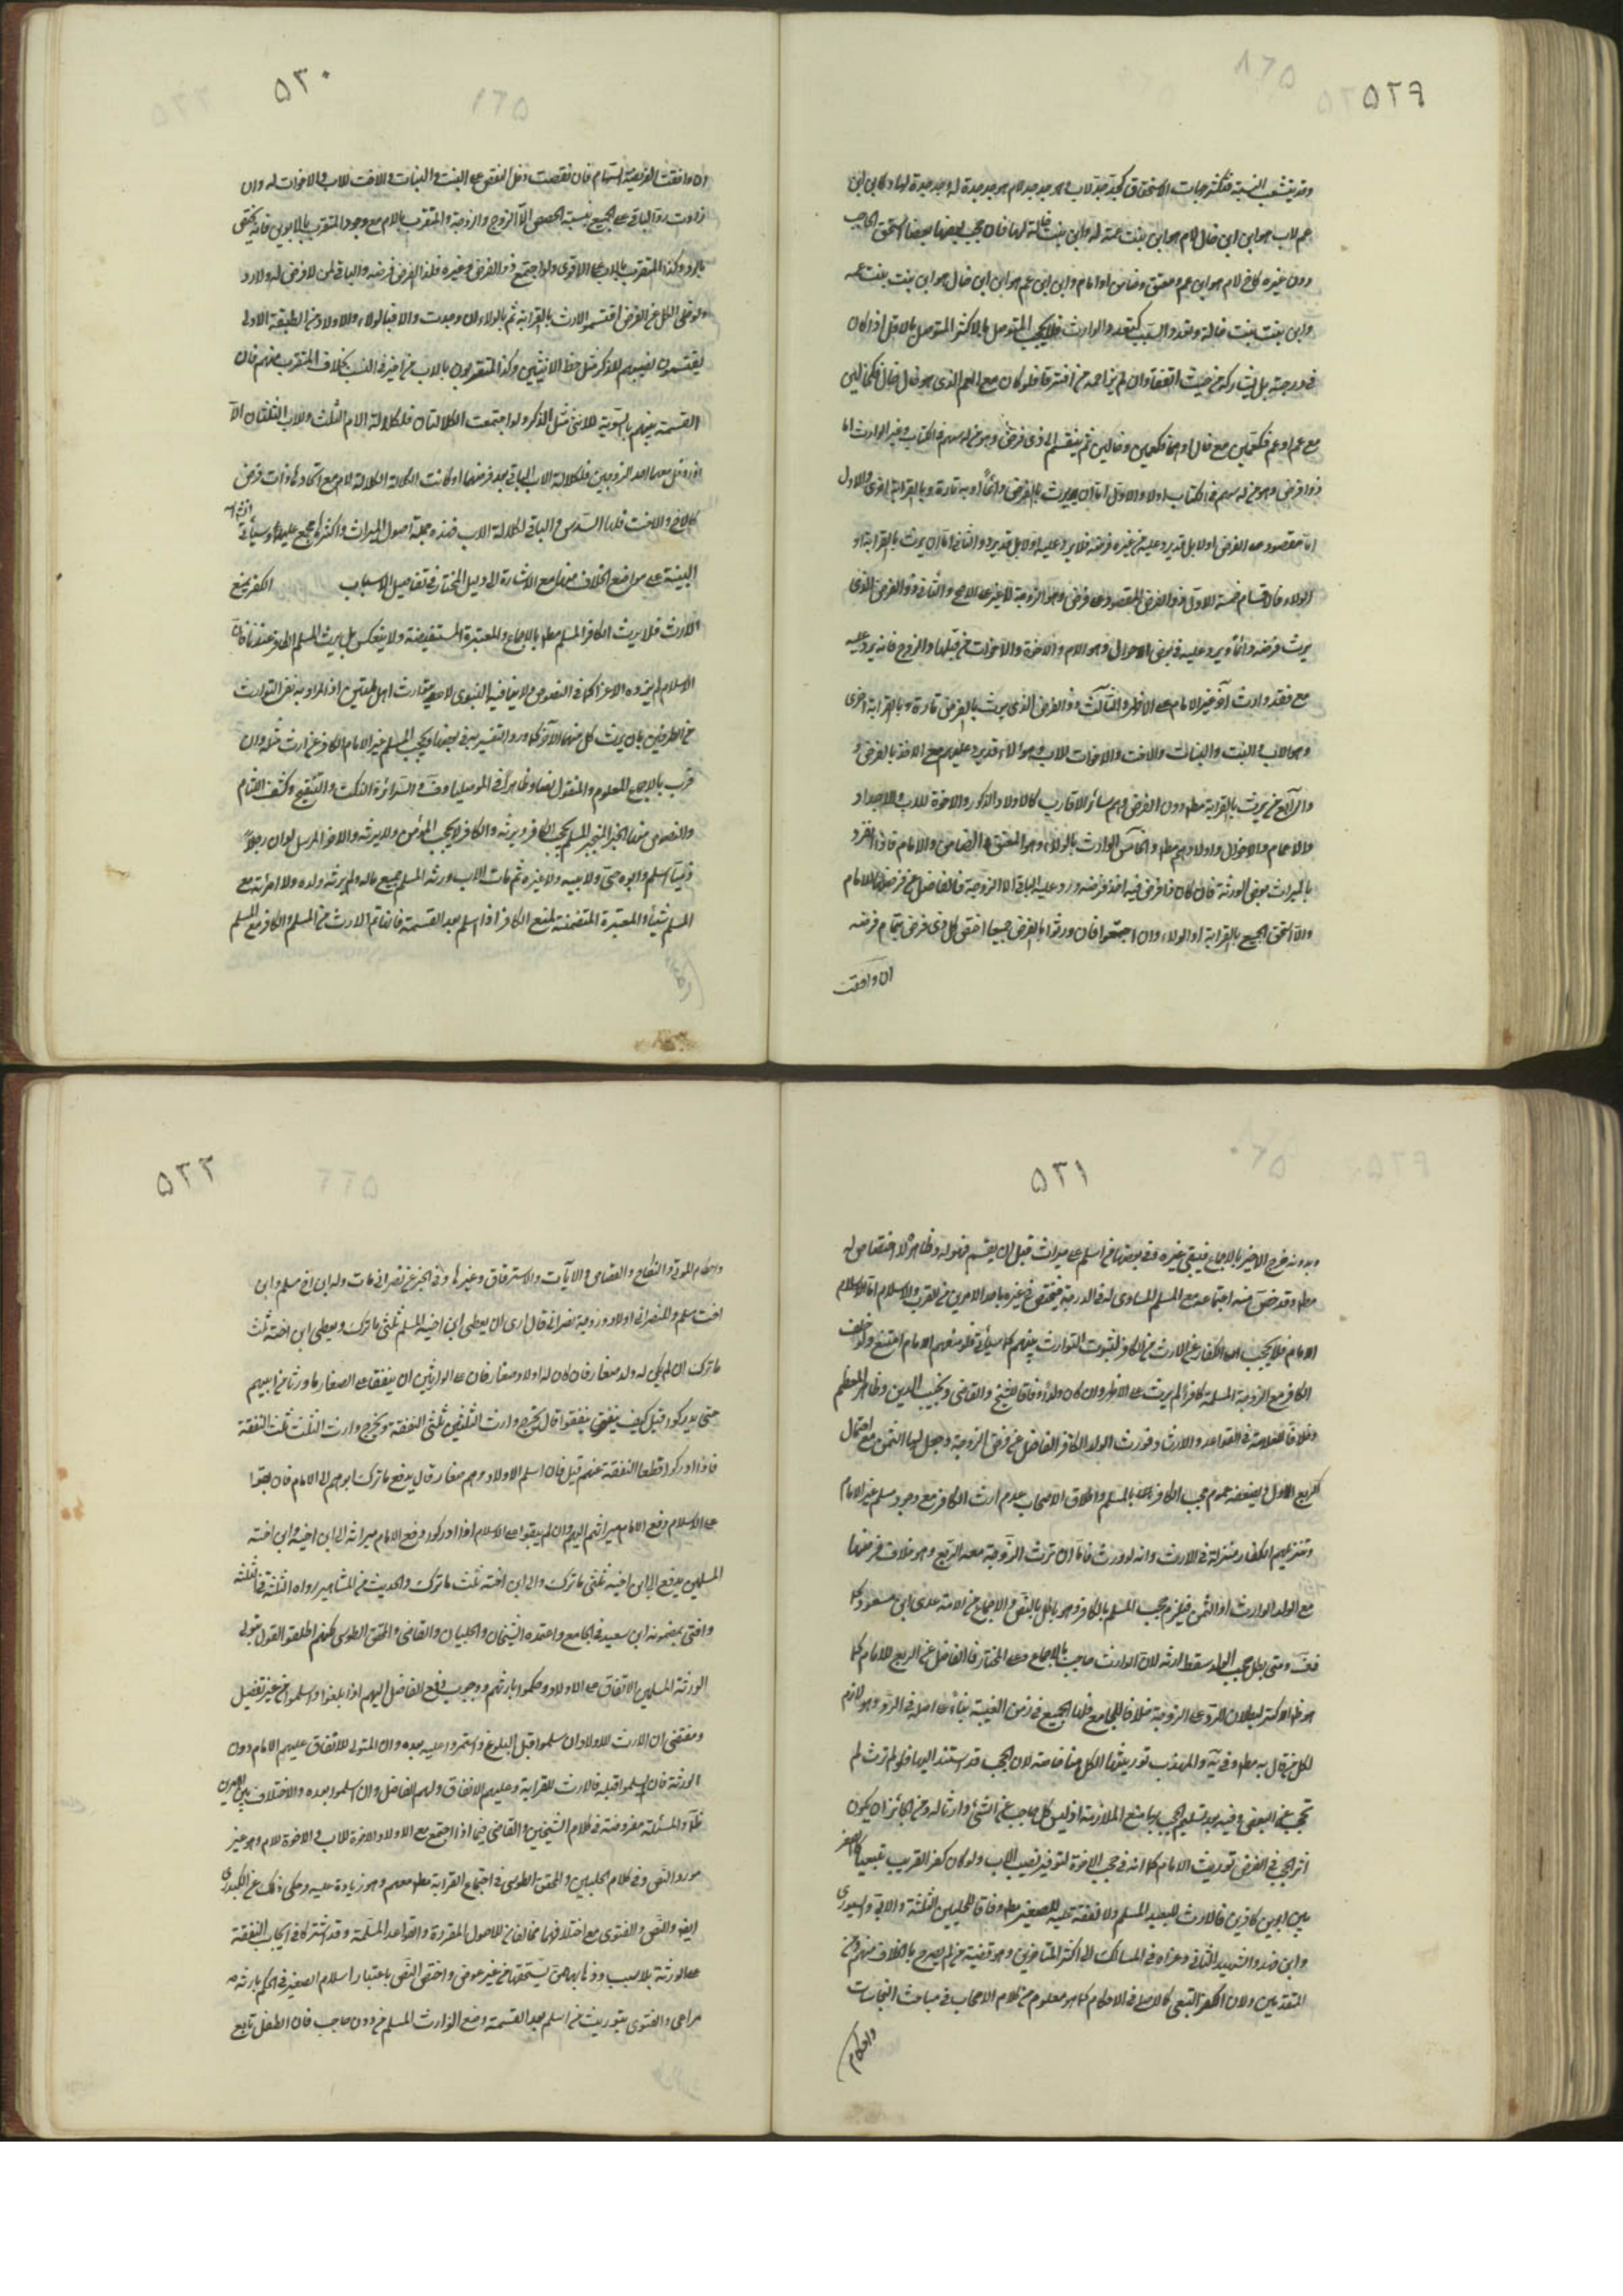 ٥٢٩
وقد يتشعب النسبة فتكثر جهات الاستحقاق كجد جدة لاب هو جد جد لام هو جد جدة له وجد جدة لها وكابن ابن
عم لاب هو ابن ابن خال لام هو ابن بنت عمة له وابن بنت خالة لها فان حجب بعضها بعضا استحق الحاجب
دون غيره كاخ لام هو ابن عم ومعتق وضامن او امام وابن ابن عم هو ابن ابن خال هو ابن بنت بنت عمه
وابن بنت بنت خالة وتعدد السبب كتعدد الوارث فلا يحجب المتوصل بالاكثر المتوصل بالاقل اذا كان
في درجته بل يشاركه من حيث اتفقا وان لم يزاحمه من افترقا فلو كان مع العم الذي هو خال خال فكخالين
مع عم او عم فكعمين مع خال او هما فكعمين وخالين ثم ينقسم الى ذي فرض وهو من له سهم في الكتاب وغير الوارث اما
ذو فرض وهو من له سهم في الكتاب اولا والاول اما ان يورث بالفرض دائما او به تارة وبالقرابة اخرى والاول
اما مقصود على الفرض اولا بل قد يرد عليه من غيره فرضه فلا يرد عليه اولا بل قد يرد والثاني اما ان يرث بالقرابة او
الولاء فالاقسام خمسة الاول ذو الفرض المقصود على فرض وهو الزوجة لا غير على الاصح والثاني ذو الفرض الذي
يرث فرضه دائما ويرد عليه في بعض الاحوال وهو الام والاخوة والاخوات من قبلها والزوج فانه يرد عليه
مع فقد وارث آخر غير الامام على الاظهر والثالث ذو الفرض الذي يرث بالفرض تارة وبالقرابة اخرى
وهو الاب والبنت والبنات والاخت والاخوات للاب وهؤلاء قد يرد عليهم مع الاخذ بالفرض و
والرابع من يرث بالقرابة مطلقا دون الفرض وهم سائر الاقارب كالاولاد الذكور والاخوة للاب والاجداد
والاعمام والاخوال واولادهم مطلقا والخامس الوارث بالولاء وهو المعتق والضامن والامام فاذا انفرد
بالميراث بعض الورثة فان كان ذا فرض فيه اخذ فرضه ورد عليه الباقي الا الزوجة فالفاضل عن فرضها للامام
والا استحق الجميع بالقرابة او الولاء وان اجتمعوا فان ورثوا بالفرض جميعا اختص كل ذي فرض بتمام فرضه
ان وافقت
٥٣٠
ان وافقت الفريضة السهام فان نقصت دخل النقص على البنت والبنات والاخت للاب والاخوات له وان
زادت رد الباقي على الجميع بنسبة الحصص الا الزوج والزوجة والمتقرب بالام مع وجود المتقرب بالابوين فانه يختص
بالرد وكذا المتقرب بالاب على الاقوى ولو اجتمع ذو الفرض وغيره فلذي الفرض فرضه والباقي لمن لا فرض له ولا رد
ولو خلى الكل عن الفرض اقتسموا الارث بالقرابة ثم بالولاء ان وجدت والا فبالولاء والاولاد من الطبقة الاولى
يقتسمون نصيبهم للذكر مثل حظ الانثيين وكذا المتقربون بالاب من اخيرة النسب بخلاف المتقرب منهم فان
القسمة بينهم بالسوية للانثى مثل الذكر ولو اجتمعت الكلالتان فلكلالة الام الثلث ولاب الثلثان الا
اذا دخل معها احد الزوجين فلكلالة الاب الباقي بعد فرضها او كانت الكلالة كلالة لام مع اتحادها ذات فرض
كالاخ والاخت فلها السدس والباقي لكلالة الاب فهذه جملة اصول الميراث واكثرها مجمع عليها وسيأتي
البينة على مواضع الخلاف منها مع الاشارة الى دليل المختار في تفاصيل الاسباب الكفر يمنع
الارث فلا يرث الكافر المسلم مطلقا بالاجماع والمعتبرة المستفيضة ولا ينعكس بل يرث المسلم الكافر عندنا فان
الاسلام لم يزده الا عزا كما في النصوص ولا ينافيه النبوي لا يتوارث اهل ملتين اذ المراد به نفي التوارث
من الطرفين بان يرث كل منهما الآخر كما ورد التفسير به في بعضها ويحجب المسلم غير الامام الكافر عن ارث مثله وان
قرب بالاجماع المعلوم والمنقول
والنصوص منها الخبر المنجبر المسلم يحجب الكافر ويرثه والكافر لا يحجب المؤمن ولا يرثه والاخر المرسل لو ان رجلا
ذميا اسلم وابوه حي ولابيه ولد غيره ثم مات الاب ورثه المسلم جميع ماله ولم يرثه ولده ولا امرأته مع
المسلم شيئا والمعتبرة المتضمنة لمنع الكافر اذا اسلم بعد القسمة فانها تم الارث من المسلم والكافر مع المسلم
٥٣١
وبدونه خرج الاخير بالاجماع فيبقى غيره وفي بعضها من اسلم على ميراث قبل ان يقسم فهو له وظاهره الاختصاص له
مطلقا وقد خص منه اجتماعه مع المسلم المساوي له في الدرجة فيختص في غيره باحد الامرين من القرب والاسلام اما الاسلام
الامام فلا يحجب اهل الكفار عن الارث من الكافر لثبوت التوارث بينهم كما سيأتي فلو منعهم الامام امتنع ولو خلف
الكافر مع الزوجة المسلمة كافرا لم يرث على الاظهر وان كان ولدا وفاقا للشيخ والقاضي ونجيب الدين وظاهر المعظم
وخلافا للعلامة في القواعد والارشاد فورث الولد الكافر الفاضل عن فرض الزوجة وجعل لها الثمن مع احتمال
الربع الاول ويضعفه عموم حجب الكافر بالمسلم واطلاق الاصحاب عدم ارث الكافر مع وجود مسلم غير الامام
وتنزيلهم الكفار منزلة في الارث وانه لو ورث فاما ان ترث الزوجة معه الربع وهو خلاف فرضها
مع الولد الوارث او الثمن فيلزم حجب المسلم بالكافر وهو باطل بالنص والاجماع من الامة عدى ابن مسعود كما
في ف ومتى بطل حجب الولد سقط ارثه لان الوارث حاجب بالاجماع وعلى المختار فالفاضل عن الربع للامام كما
هو ظاهر الاكثر لبطلان الرد على الزوجة خلافا للجامع فلها الجميع في زمن الغيبة بناء على اصله في الرد وهو لازم
لكل من قال به مطلقا وفي ية والمهذب توريثها الكل هنا خاصة لان الحجب قد استند اليها فلو لم ترث لم
تحجب عن البعض وفيه بعد تسليم الحجب بها منع الملازمة اذ ليس كل حاجب عن الشيء وارثا له ومن الجائز ان يكون
اثر الحجب في الفرض توريث الامام كما انه في حجب الاخوة لتوفير نصيب الاب ولو كان كفر القريب تبعيا كالصغير
بين ابوين كافرين فالارث للبعيد المسلم ولا نفقة عليه للصغير مطلقا وفاقا للحليين الثلثة والآبي والسيوري
وابن فهد والشهيد الثاني وعزاه في المسالك الى اكثر المتاخرين وهو قضية من لم يصرح بالخلاف منهم ومن
المتقدمين ولان الكفر التبعي كالاصلي في الاحكام كما هو معلوم من كلام الاصحاب في مباحث النجاسات
واحكام
٥٣٢
واحكام الموتى والنكاح والقصاص والايات والاسترقاق وغيرها وفي الخبر عن نصراني مات وله ابن اخ مسلم وابن
اخت مسلم وللنصراني اولاد وزوجة نصرانية قال ارى ان يعطى ابن اخيه المسلم ثلثي ما ترك ويعطى ابن اخته ثلث
ما ترك ان لم يكن له ولد صغار فان كان له اولاد صغار فان على الوارثين ان ينفقا على الصغار مما ورثا من ابيهم
حتى يدركوا قيل كيف ينفقان قال يخرج وارث الثلثين ثلثي النفقة ويخرج وارث الثلث ثلث النفقة
فاذا ادركوا قطعا النفقة عنهم قيل فان اسلم الاولاد وهم صغار قال يدفع ما ترك ابوهم الى الامام فان بقوا
على الاسلام دفع الامام ميراثهم اليهم وان لم يبقوا على الاسلام اذا ادركوا دفع الامام ميراثه الى ابن اخيه وابن اخته
المسلمين يدفع الى ابن اخيه ثلثي ما ترك والى ابن اخته ثلث ما ترك والحديث من المشاهير رواه الثلثة
وافتى بمضمونه ابن سعيد في الجامع واعتمده الشيخان والحلبيان والقاضي والمحقق الطوسي لكنهم اطلقوا القول بتولي
الورثة المسلمين الانفاق على الاولاد وحكموا بارثهم ووجوب دفع الفاضل اليهم اذا بلغوا واسلموا من غير تفصيل
ومقتضى ان الارث للاولاد ان سلموا قبل البلوغ واستمروا عليه بعده وان المتولي للانفاق عليهم الامام دون
الورثة فان اسلموا قبله فالارث للقرابة وعليهم الانفاق ولهم الفاضل وان اسلموا بعده والاختلاف بين الامرين
ظاهر والمسئلة مفروضة في كلام الشيخين والقاضي فيما اذا اجتمع مع الاولاد الاخوة للاب والاخوة للام وهو غير
مورد النص وفي كلام الحلبيين والمحقق الطوسي في اجتماع القرابة مطلقا معهم وهو زيادة عليه وحكى ذلك عن الكيدري
ايضا والنص والفتوى مع اختلافهما مخالفان للاصول المقررة والقواعد المسلمة وقد اشتركا في ايجاب النفقة
على الورثة بلا سبب وذهابهما حق يستحقها من غير عوض واختص النص باعتبار اسلام الصغير في الحكم بارثه
مراعى والفتوى بتوريث من اسلم بعد القسمة ومنع الوارث المسلم من دون حاجب فان الطفل تابع